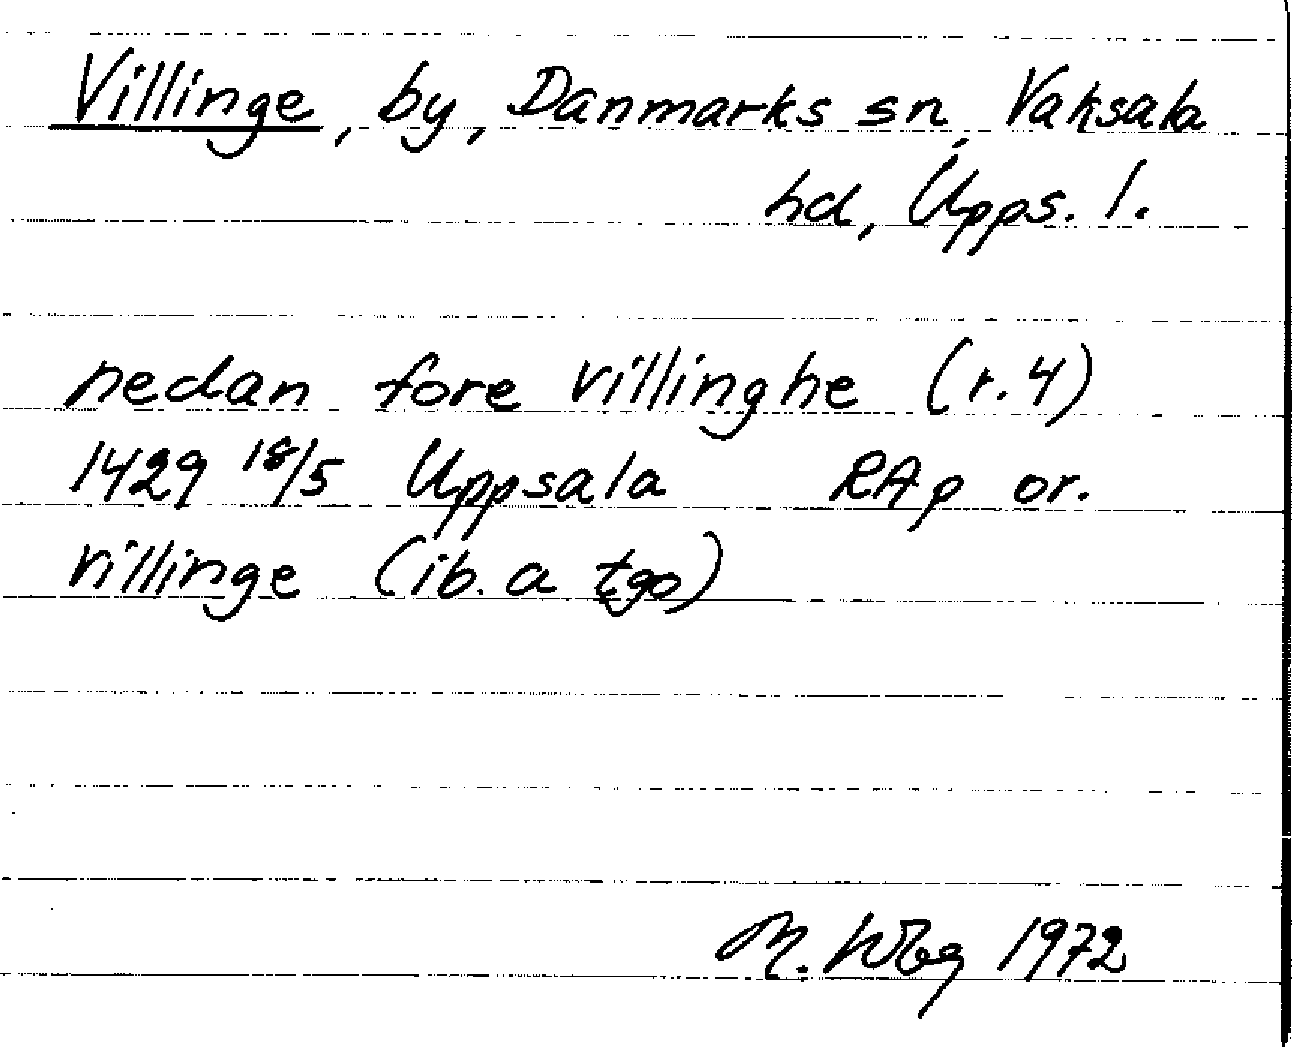 Villinge, by, Danmarks sn, Vaksala
hd, Upps. l.
nedan fore villinghe (r. 4)
1429 18/5 Uppsala RAp or.
villinge (ib. a tgo)
M. Wbg 1972